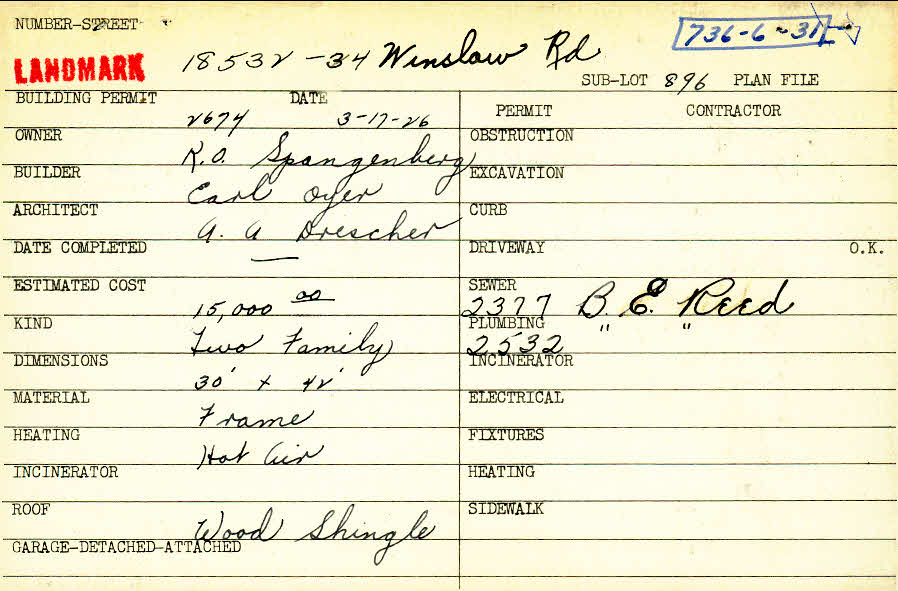 NUMBER-STREET
736-6-31
LANDMARK 18532-34 Winslow Rd
SUB-LOT 896 PLAN FILE
BUILDING PERMIT 2674 DATE 3-17-26
PERMIT CONTRACTOR
OWNER R.O. Spangenberg
OBSTRUCTION
BUILDER Earl Oyer
EXCAVATION
ARCHITECT A. A Drescher
CURB
DATE COMPLETED —
DRIVEWAY O.K.
ESTIMATED COST 15,000 00
SEWER 2377 B. E. Reed
KIND Two Family
PLUMBING 2532 " "
DIMENSIONS 30' x 42'
INCINERATOR
MATERIAL Frame
ELECTRICAL
HEATING Hot Air
FIXTURES
INCINERATOR
HEATING
ROOF Wood Shingle
SIDEWALK
GARAGE-DETACHED-ATTACHED